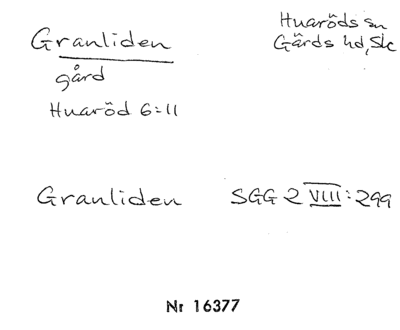 Granliden
Huaröds sn
Gärds hd, Sk
gård
Huaröd 6:11
Granliden SGG 2 VIII:299
Nr 16377